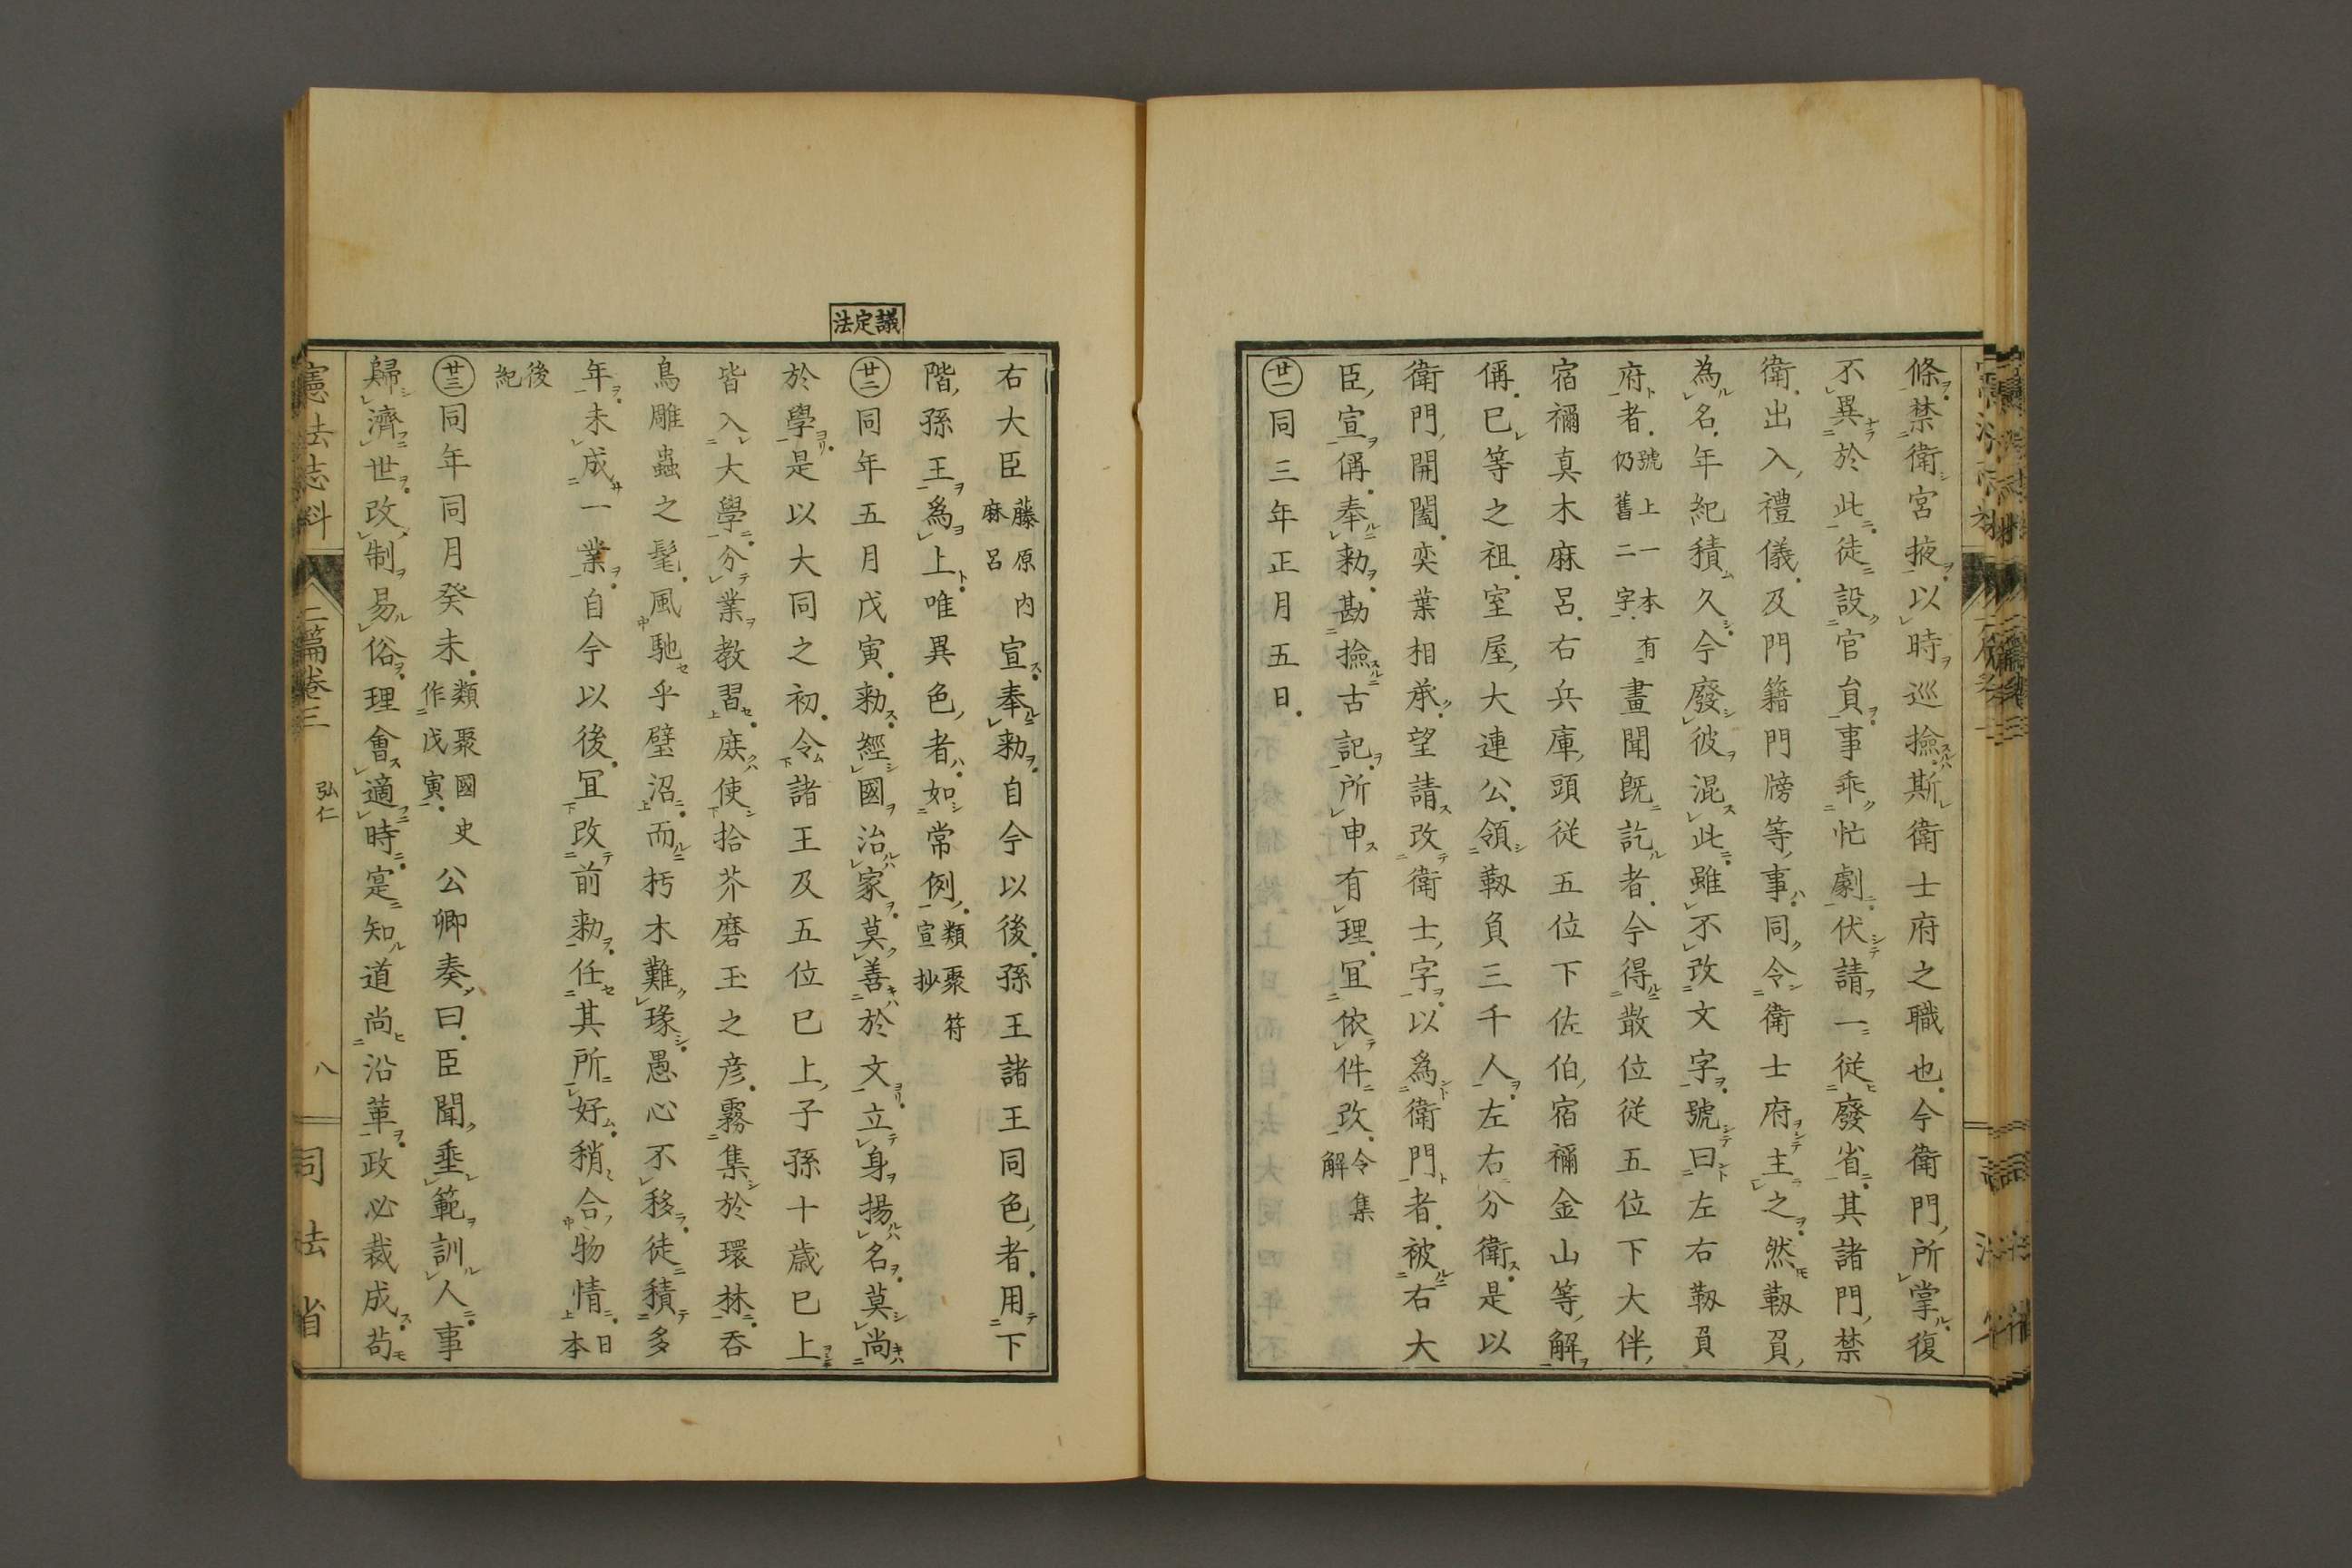 條禁衛宮掖以時巡撿斯衛士府之職也今衛門所掌復
不異於此徒設官員事乖忙劇伏請一從廢省其諸門禁
衛出入禮儀及門籍門牓等事同令衛士府主之然靱負
為名年紀積久今廢彼混此雖不改文字號曰左右靱負
府者號上一本有仍舊二字畫聞既訖者今得散位從五位下大伴
宿禰真木麻呂右兵庫頭従五位下佐伯宿禰金山等解
偁已等之祖室屋大連公領靱負三千人左右分衛是以
衛門開闔奕葉相承望請改衛士字以為衛門者被右大
臣宣偁奉勅勘撿古記所申有理冝依件改令集解
廿一同三年正月五日
議定法
右大臣藤原内麻呂宣奉勅自今以後孫王諸王同色者用下
階孫王為上唯異色者如常例類聚符宣抄
廿二同年五月戊寅勅經國治家莫善於文立身揚名莫尚
於學是以大同之初令諸王及五位已上子孫十歳已上
皆入大學分業教習庶使拾芥磨玉之彦霧集於環林呑
鳥雕蟲之髦風馳乎璧沼而朽木難琢愚心不移徒積多
年未成一業自今以後冝改前勅任其所好稍合物情日本
後紀
廿三同年同月癸未類聚國史作戊寅公卿奏曰臣聞垂範訓人事
歸濟世改制易俗理會適時寔知道尚沿革政必裁成苟
憲法志料 二篇卷三 弘仁 八 司法省